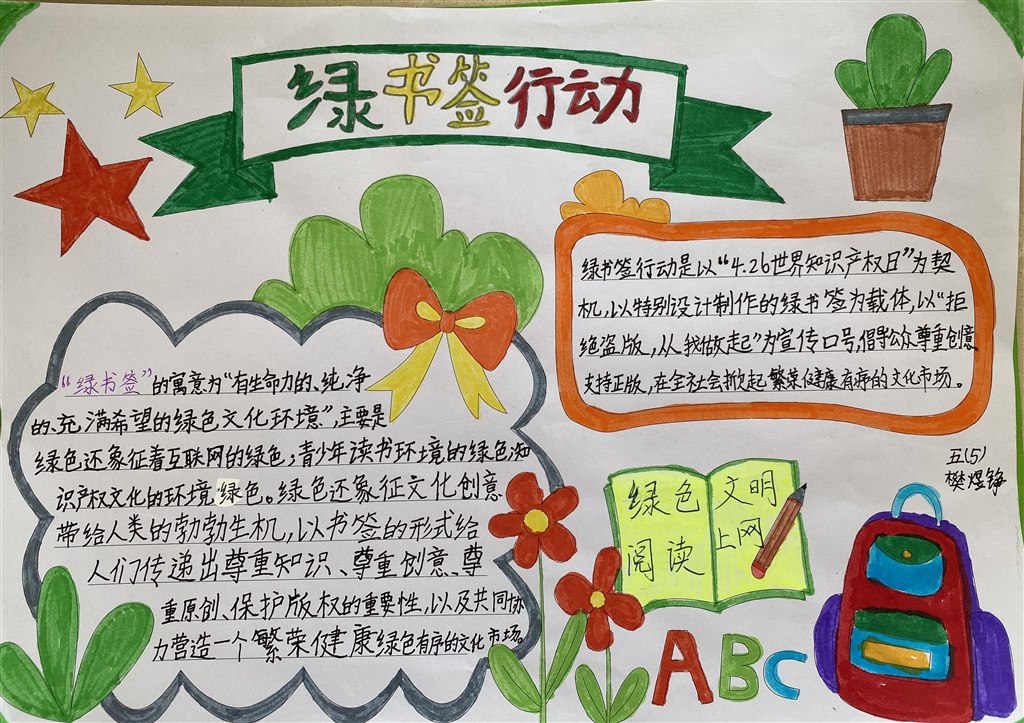 绿书签行动
绿书签行动是以“4.26世界知识产权日”为契
机,以特别设计制作的绿书签为载体,以“拒
绝盗版,从我做起”为宣传口号,倡导公众尊重创意
支持正版,在全社会掀起繁荣健康有序的文化市场。
“绿书签”的寓意为“有生命力的、纯净
的、充满希望的绿色文化环境”,主要是
绿色还象征着互联网的绿色,青少年读书环境的绿色,知
识产权文化的环境绿色。绿色还象征文化创意
带给人类的勃勃生机,以书签的形式给
人们传递出尊重知识、尊重创意、尊
重原创、保护版权的重要性,以及共同协
力营造一个繁荣健康绿色有序的文化市场。
五(5)
樊煜铮
绿色
阅读
文明
上网
ABC